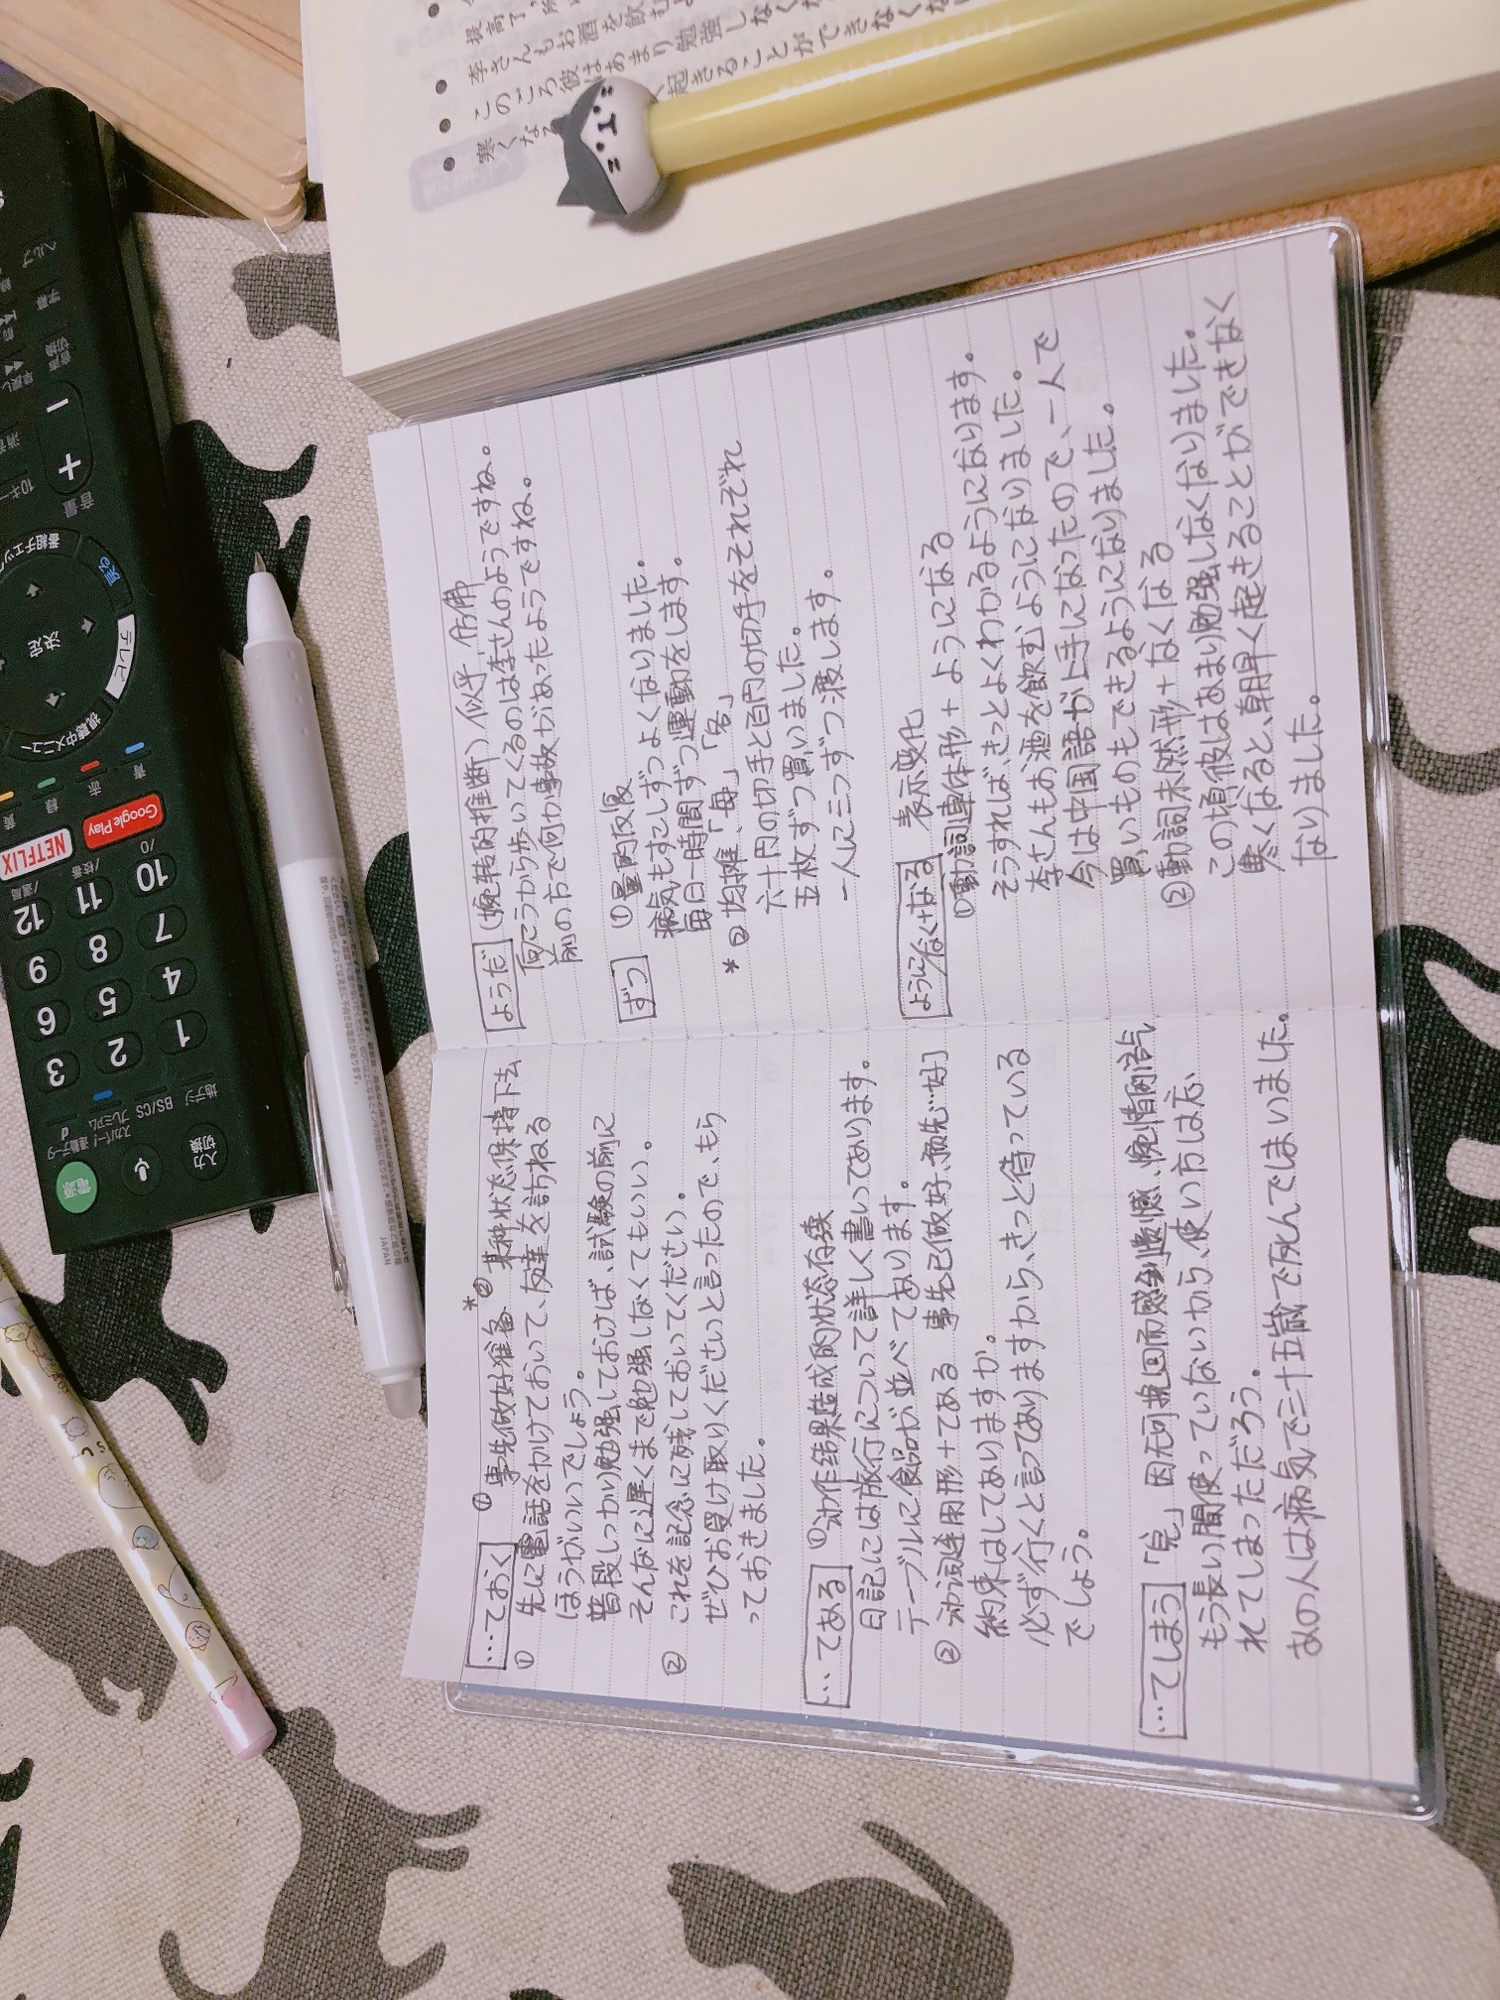 …ておく ① 事先做好准备 *② 某种状态保持下去
① 先に電話をかけておいて、友達を訪ねる
ほうがいいでしょう。
普段しっかり勉強しておけば、試験の前に
そんなに遅くまで勉強しなくてもいい。
② これを記念に残しておいてください。
ぜひお受け取りくださいと言ったので、もら
っておきました。
…てある ①动作结果造成的状态存续
日記には旅行について詳しく書いてあります。
テーブルに食品が並べてあります。
② 动词连用形+てある 事先已做好、预先…好
約束はしてありますか。
必ず行くと言ってありますから、きっと待っている
でしょう。
…てしまう 「完」因无可挽回而感到遗憾、惋惜的语气
もう長い間使っていないから、使い方は忘
れてしまっただろう。
あの人は病気で三十五歳で死んでしまいました。
ようだ (婉转的推断)似乎、仿佛
向こうから歩いてくるのは李さんのようですね。
前の方で何か事故があったようですね。
ずつ ①量的反復
病気もすこしずつよくなりました。
毎日一時間ずつ運動をします。
* ② 均摊、「每」「各」
六十円の切手と百円の切手をそれぞれ
五枚ずつ買いました。
一人に三つずつ渡します。
ように/なく+なる 表示变化
①動詞連体形+ようになる
そうすれば、きっとよくわかるようになります。
李さんもお酒を飲むようになりました。
今は中国語が上手になったので、一人で
買いものもできるようになりました。
②動詞未然形+なくなる
この頃彼はあまり勉強しなくなりました。
寒くなると、朝早く起きることができなく
なりました。
李さんもお酒を飲む
このごろ彼はあまり勉強しなく
寒くな
起きることができなくな
ヘルプ
字幕
音声切換
早戻し
消音
10キー
音量
+
−
番組チェック
戻る
決定
テレビ
視聴中メニュー
青
赤
緑
黄
Google Play
NETFLIX
1 2 3
4 5 6
7 8 9
10 11 12
地デジ
BS/CS
スカパー!プレミアム
連動データ
d
入力切換
電源
JAPAN